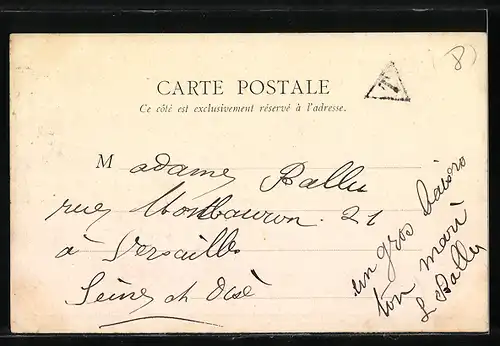 8)
T
CARTE POSTALE
Ce côté est exclusivement réservé à l'adresse.
Madame Ballu
rue Montbauron. 21
à Versailles
Seine et Oise
un gros baisers
ton mari
L Ballu